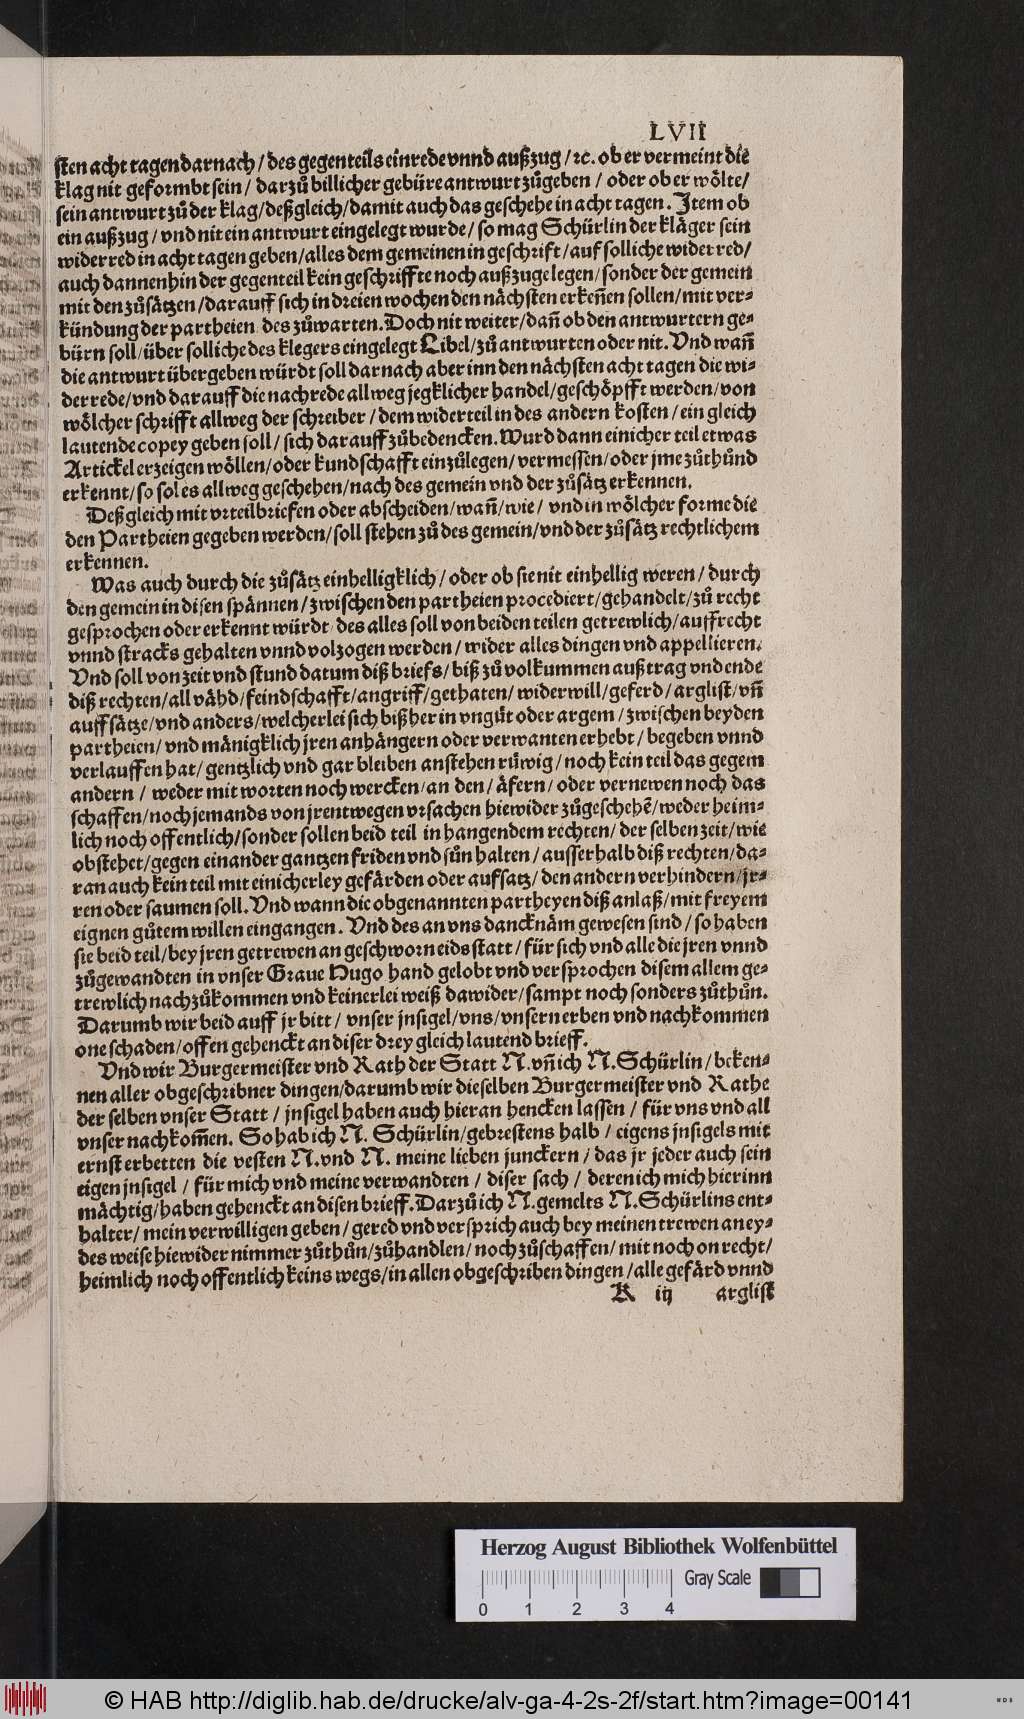 LVII
sten acht tagen darnach / des gegenteils einrede vnnd außzug / ꝛc. ob er vermeint die
klag nit geformbt sein / darzů billicher gebüre antwurt zůgeben / oder ob er wölte /
sein antwurt zů der klag / deßgleich / damit auch das geschehe in acht tagen. Item ob
ein außzug / vnd nit ein antwurt eingelegt wurde / so mag Schürlin der kläger sein
widerred in acht tagen geben / alles dem gemeinen in geschrift / auf solliche widerred /
auch dannenhin der gegenteil kein geschriffte noch außzuge legen / sonder der gemein
mit den zůsätzen / darauff sich in dreien wochen den nächsten erkeñen sollen / mit ver⸗
kündung der partheien des zůwarten. Doch nit weiter / dañ ob den antwurtern ge⸗
bürn soll / über solliche des klegers eingelegt Libel / zů antwurten oder nit. Vnd wañ
die antwurt übergeben würdt soll darnach aber inn den nächsten acht tagen die wi⸗
derrede / vnd darauff die nachrede allweg jegklicher handel / geschöpfft werden / von
wölcher schrifft allweg der schreiber / dem widerteil in des andern kosten / ein gleich
lautende copey geben soll / sich darauff zůbedencken. Wurd dann einicher teil etwas
Artickel erzeigen wöllen / oder kundschafft einzůlegen / vermessen / oder jme zůthůnd
erkennt / so sol es allweg geschehen / nach des gemein vnd der zůsätz erkennen.
Deßgleich mit vrteilbriefen oder abscheiden / wañ / wie / vnd in wölcher forme die
den Partheien gegeben werden / soll stehen zů des gemein / vnd der zůsätz rechtlichem
erkennen.
Was auch durch die zůsätz einhelligklich / oder ob sie nit einhellig weren / durch
den gemein in disen spännen / zwischen den partheien procediert / gehandelt / zů recht
gesprochen oder erkennt würdt / des alles soll von beiden teilen getrewlich / auffrecht
vnnd stracks gehalten vnnd volzogen werden / wider alles dingen vnd appellieren.
Vnd soll von zeit vnd stund datum diß briefs / biß zů volkummen außtrag vnd ende
diß rechten / all vähd / feindschafft / angriff / gethaten / widerwill / geferd / arglist / vñ
auffsätze / vnd anders / welcherlei sich bißher in vngůt oder argem / zwischen beyden
partheien / vnd mänigklich jren anhängern oder verwanten erhebt / begeben vnnd
verlauffen hat / gentzlich vnd gar bleiben anstehen růwig / noch kein teil das gegem
andern / weder mit worten noch wercken / an den / äfern / oder vernewen noch das
schaffen / noch jemands von jrentwegen vrsachen hiewider zůgeschehẽ / weder heim⸗
lich noch offentlich / sonder sollen beid teil in hangendem rechten / der selben zeit / wie
obstehet / gegen einander gantzen friden vnd sůn halten / ausserhalb diß rechten / da⸗
ran auch kein teil mit einicherley gefärden oder aufsatz / den andern verhindern / jr⸗
ren oder saumen soll. Vnd wann die obgenannten partheyen diß anlaß / mit freyem
eignen gůtem willen eingangen. Vnd des an vns dancknäm gewesen sind / so haben
sie beid teil / bey jren getrewen an geschworn eids statt / für sich vnd alle die jren vnnd
zůgewandten in vnser Graue Hugo hand gelobt vnd versprochen disem allem ge⸗
trewlich nachzůkommen vnd keinerlei weiß dawider / sampt noch sonders zůthůn.
Darumb wir beid auff jr bitt / vnser jnsigel / vns / vnsern erben vnd nachkommen
one schaden / offen gehenckt an diser drey gleich lautend brieff.
Vnd wir Burgermeister vnd Rath der Statt N. vñ ich N. Schürlin / beken⸗
nen aller obgeschribner dingen / darumb wir dieselben Burgermeister vnd Rathe
der selben vnser Statt / jnsigel haben auch hieran hencken lassen / für vns vnd all
vnser nachkom̃en. So hab ich N. Schürlin / gebrestens halb / eigens jnsigels mit
ernst erbetten die vesten N. vnd N. meine lieben junckern / das jr jeder auch sein
eigen jnsigel / für mich vnd meine verwandten / diser sach / deren ich mich hierinn
mächtig / haben gehenckt an disen brieff. Darzů ich N. gemelts N. Schürlins ent⸗
halter / mein verwilligen geben / gered vnd versprich auch bey meinen trewen an ey⸗
des weise hiewider nimmer zůthůn / zůhandlen / noch zůschaffen / mit noch on recht /
heimlich noch offentlich keins wegs / in allen obgeschriben dingen / alle gefärd vnnd
K iij arglist
Herzog August Bibliothek Wolfenbüttel
Gray Scale
0 1 2 3 4
© HAB http://diglib.hab.de/drucke/alv-ga-4-2s-2f/start.htm?image=00141